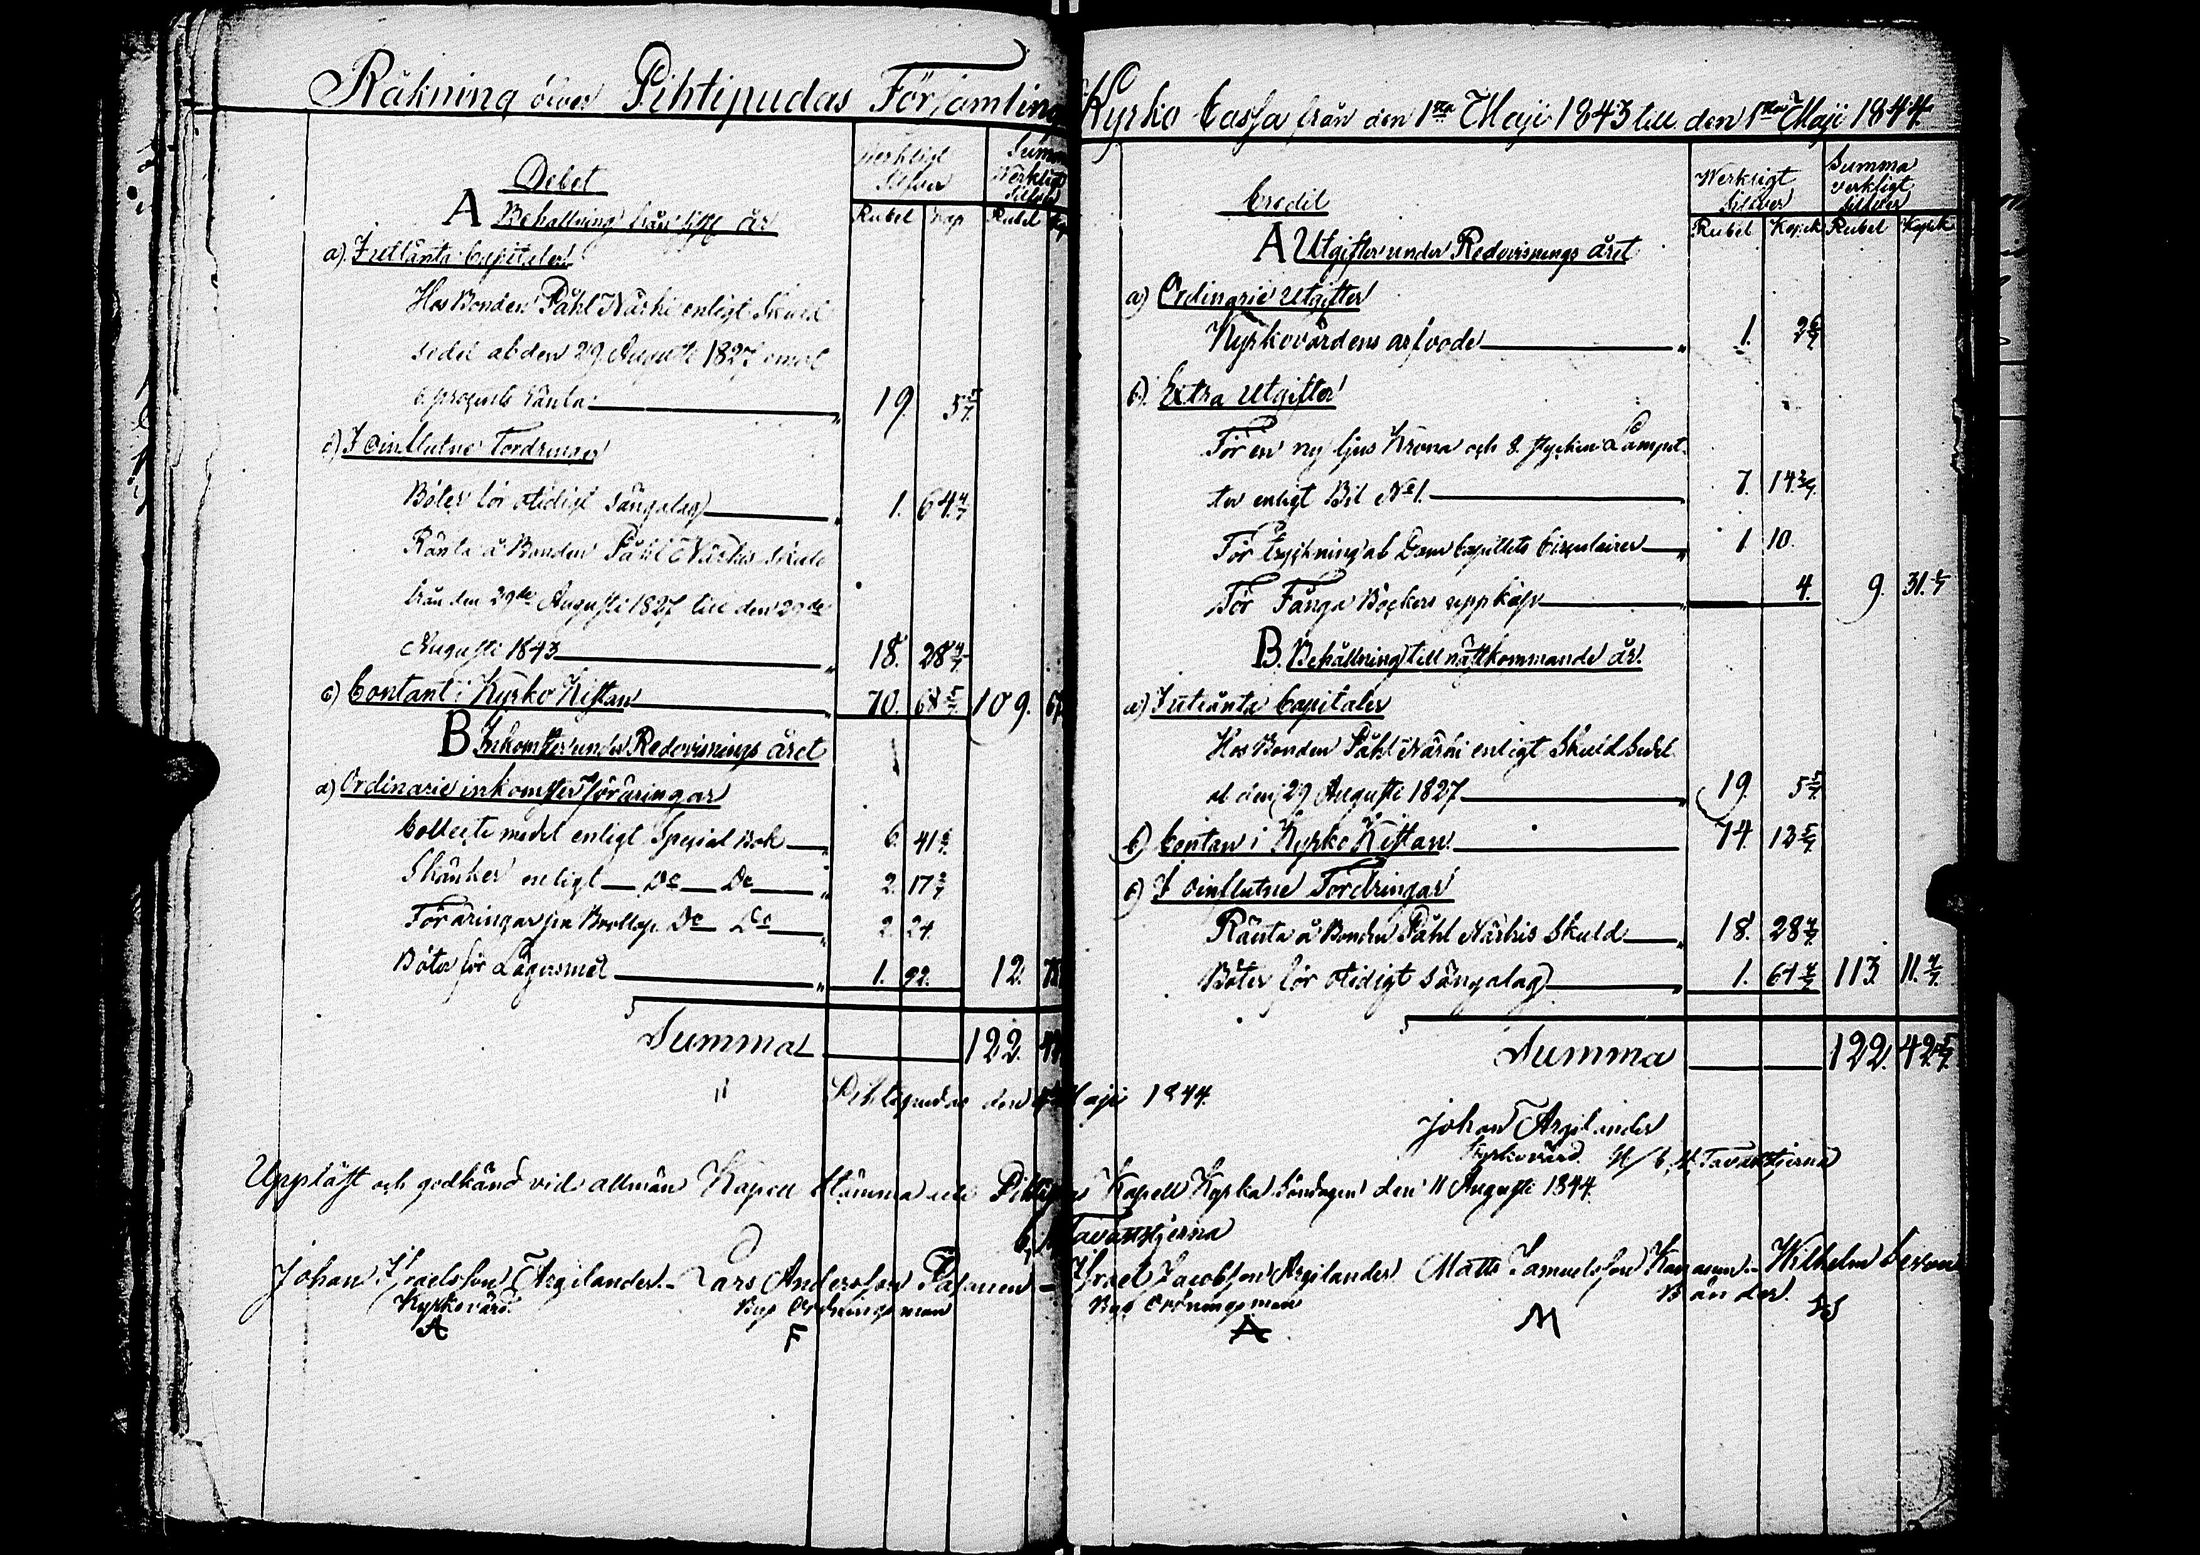 Räkning öfver Pihtipudas Församlings Kyrko Cassa från den 1sta Maji 1843 till den 1sta Maji 1844.
Debet
Werkligt Silfver
Summa Werkligt Silfver
Rubel Kop Rubel Kop
A Behållning från sistl. år
a) Uutlånta Capitaler
Hos Bonden Påhl Närhi enligt Skuld
sedel af den 29 Augusti 1827 emot
6 procents Ränta 19 5 5/7
b) I Oinflutne Fordringar
Böter för otidigt sängalag 1. 64 4/7
Ränta å Bonden Påhl Närhis skuld
från den 29de Augusti 1827 till den 29de
Augusti 1843 18. 28 4/7
c) Contant i Kyrko Kistan 70. 68 5/7 109. 67
B Inkomster under Redovisnings året
a) Ordinarie inkomster föräringar
Collecte medel enligt Special Bok 6. 41 3/7
Skänker enligt Do Do 2. 17 2/7
Föräringar från Brollop Do Do 2. 24.
Böter för Lägersmål 1. 92. 12. 75
Summa 122. 42
Credit
Werkligt Silfver
Summa verkligt silfver
Rubel Kopek Rubel Kopek
A Utgifter under Redovisnings året
a) Ordinarie Utgifter
Kyrkovärdens arfvode 1. 2 6/7
b) Extra Utgifter
För en ny ljus Krona och 8. stycken Lampet-
ter enligt Bil No 1. 7. 14 2/7
För tryckning af Dom Capitlets Circulairer 1 10.
För Fånga Böckers uppköp 4. 9. 31 1/7
B. Behållning till nästkommande år.
a) Utlånta Capitaler
Hos Bonden Påhl Närhi enligt Skuld Sedel
af den 29 Augusti 1827 19. 5 5/7
b) Contan i Kyrko Kistan 74. 12 5/7
c) I oinflutne Fordringar
Ränta å Bonden Påhl Närhis Skuld 18. 28 4/7
Böter för otidigt sängalag 1. 64 4/7 113. 11. 4/7
Summa 122. 42 5/7
Pihtipudas den Maji 1844.
Johan Argilander
Kyrkovärd. Tavaststjerna
Uppläst och godkänd vid allmän Kapell Stämma uti Pihtipudas Kapell Kyrka Söndagen den 11 Augusti 1844.
Tavaststjerna
Johan Israelsson Argilander. Lars Andersson Pasanen Israel Jacobsson Argilander Matts Samuelsson Kananen Wilhelm
Kyrkovärd. By Ordningsman By Ordningsman Bönder.
A F A M